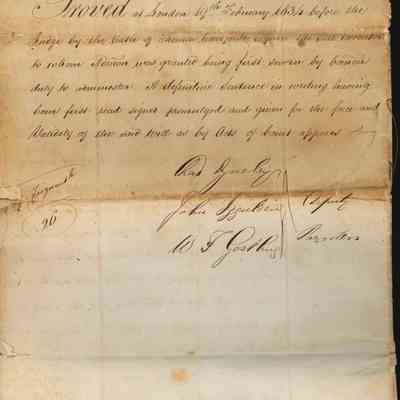 Proved at London 19th February 1834 before the
Judge by the Oath of Thomas Esquire the sole Executor
to whom Admon was granted being first sworn by Comon
duly to administer A definitive Sentence in writing having
been first read signed promulged and given for the force and
Validity of the said Will as by Acts of Court appears
Chas Dyneley
John Iggulden
W F Gostling
Deputy
Registers
96